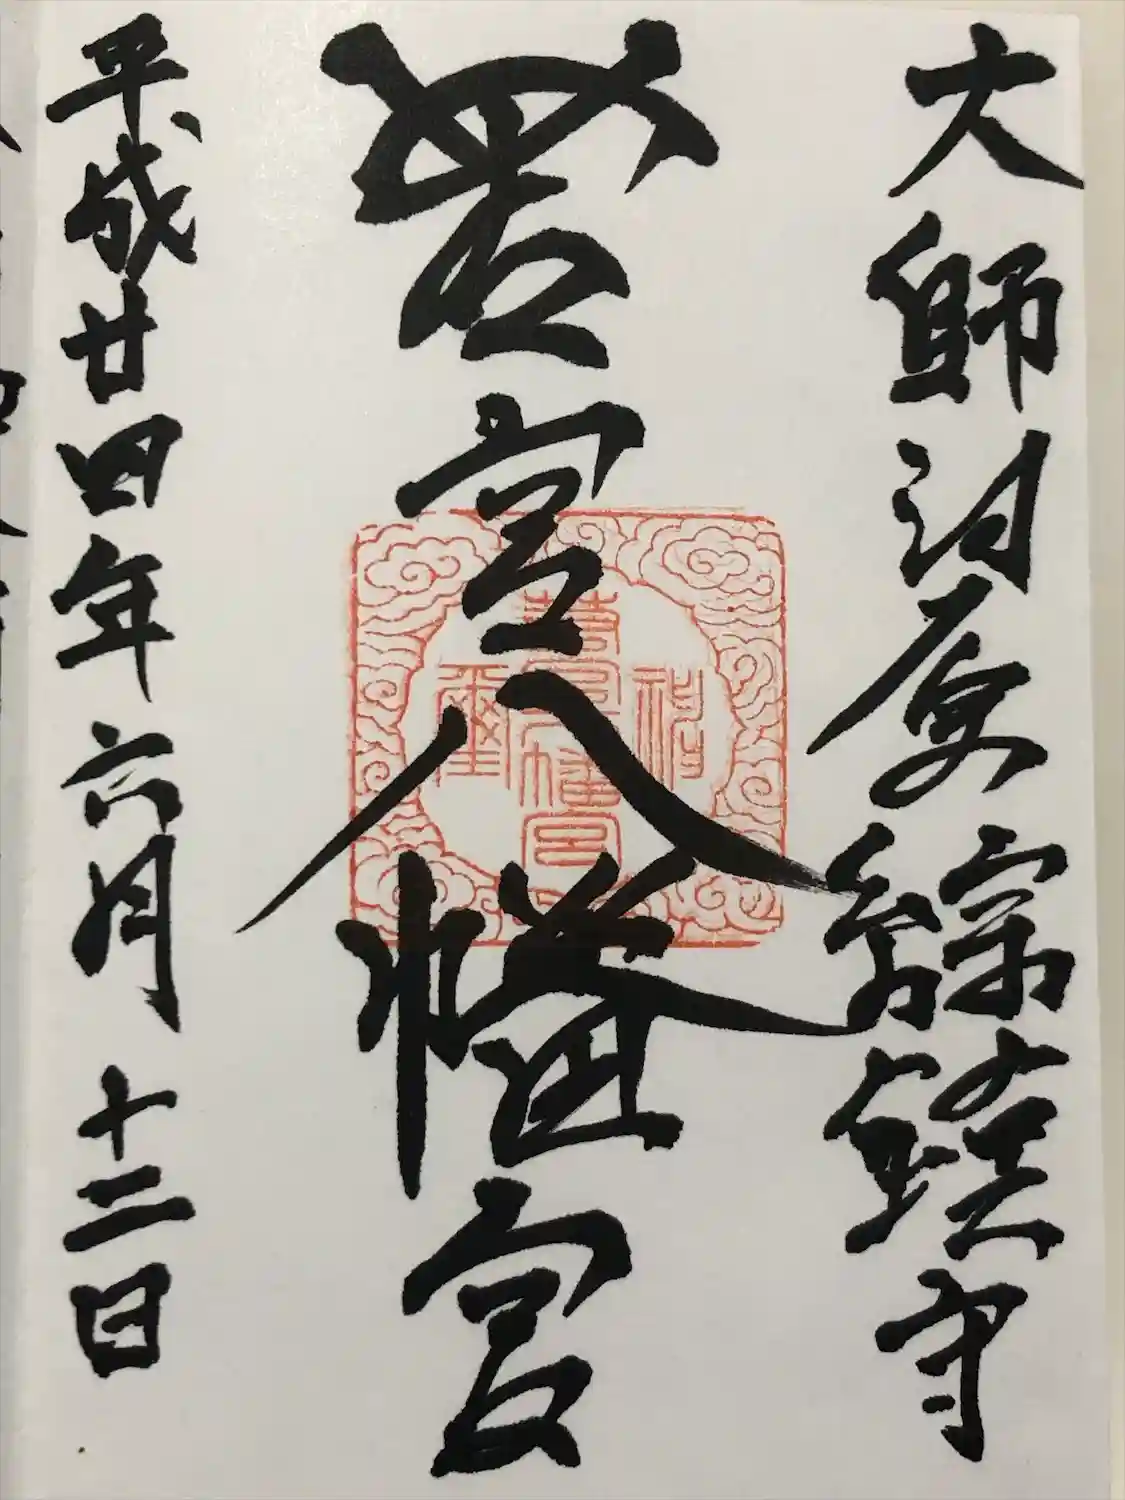 大師河原綜鎮守
若宮八幡宮
若宮八幡宮
平成廿四年六月十二日